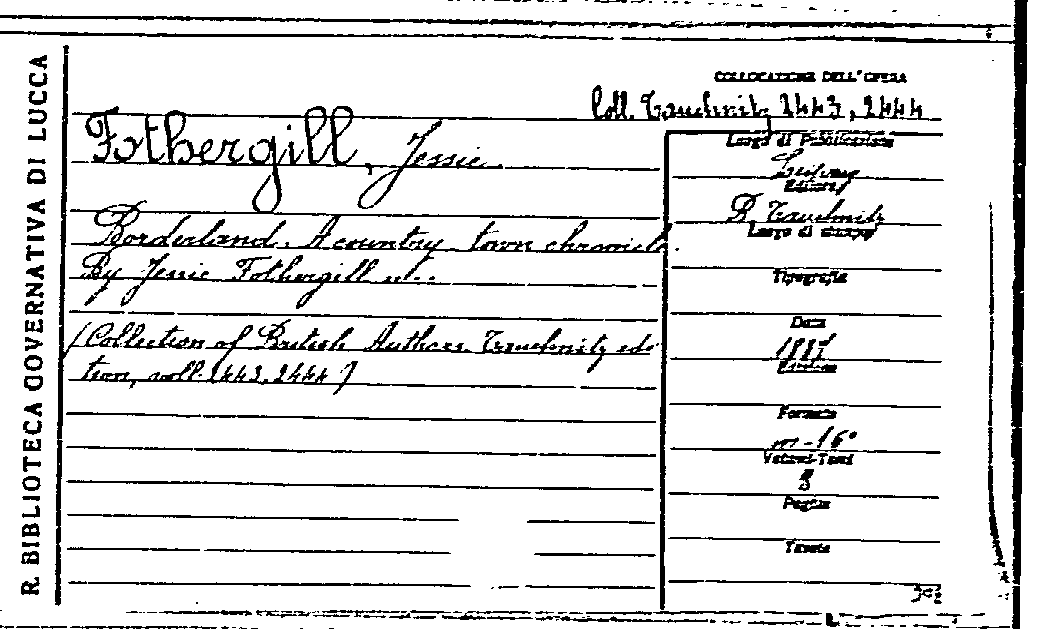 R. BIBLIOTECA GOVERNATIVA DI LUCCA
COLLOCAZIONE DELL'OPERA
Coll. Tauchnitz 2443, 2444
Fothergill, Jessie.
Borderland. A country town chronicle.
By Jessie Fothergill
(Collection of British Authors Tauchnitz edi-
tion, voll. 2443, 2444)
Luogo di Pubblicazione
Editore
B. Tauchnitz
Luogo di stampa
Tipografia
Data
1887
Formato
in-16°
Volumi-Tomi
Pagine
Tavole